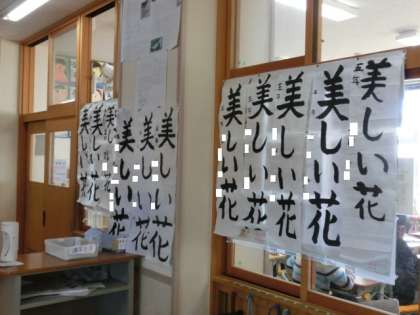 五年
美しい花
美しい花
美しい花
美しい花
美しい花
美しい花
美しい花
美しい花
美しい花
美しい花
美しい花